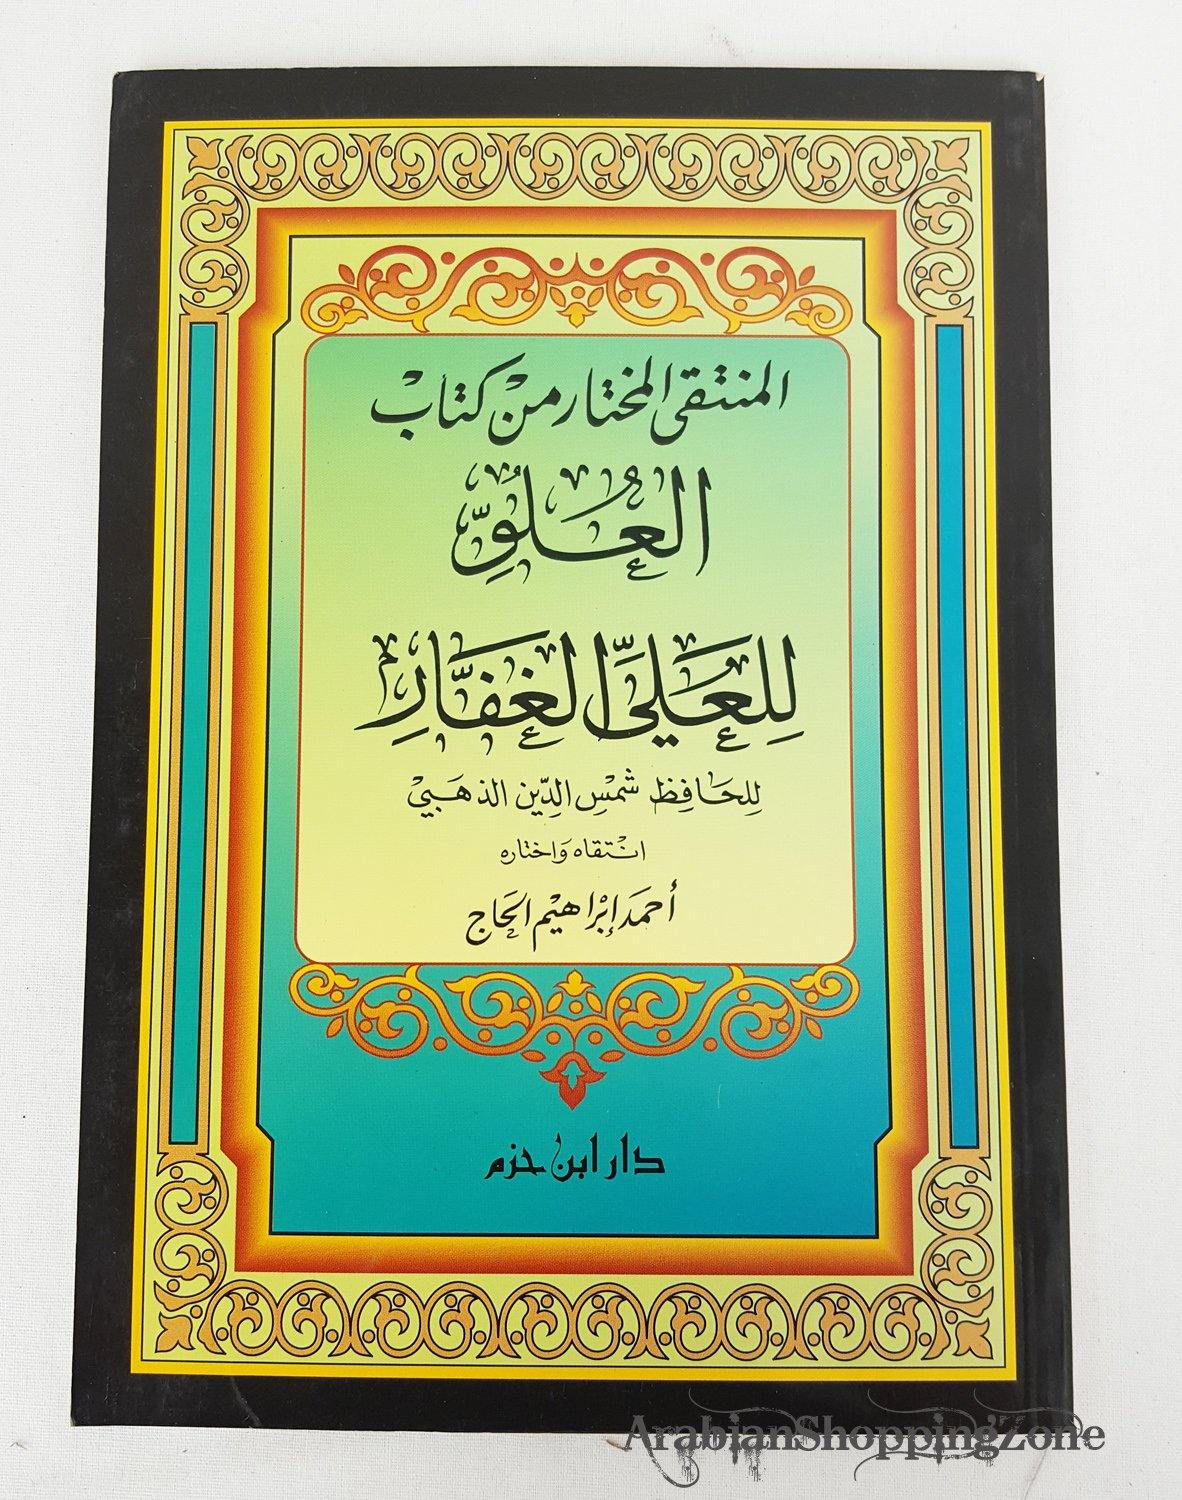 المنتقى المختار من كتاب
العُلوِّ
لِلعَليِّ الغَفَّارِ
لِلحَافِظ شمْس الدِّين الذهَبيْ
انْتقاه وَاختاره
أحمَد إبْراهيْم الحَاج
دار ابن حزم
ArabianShoppingZone